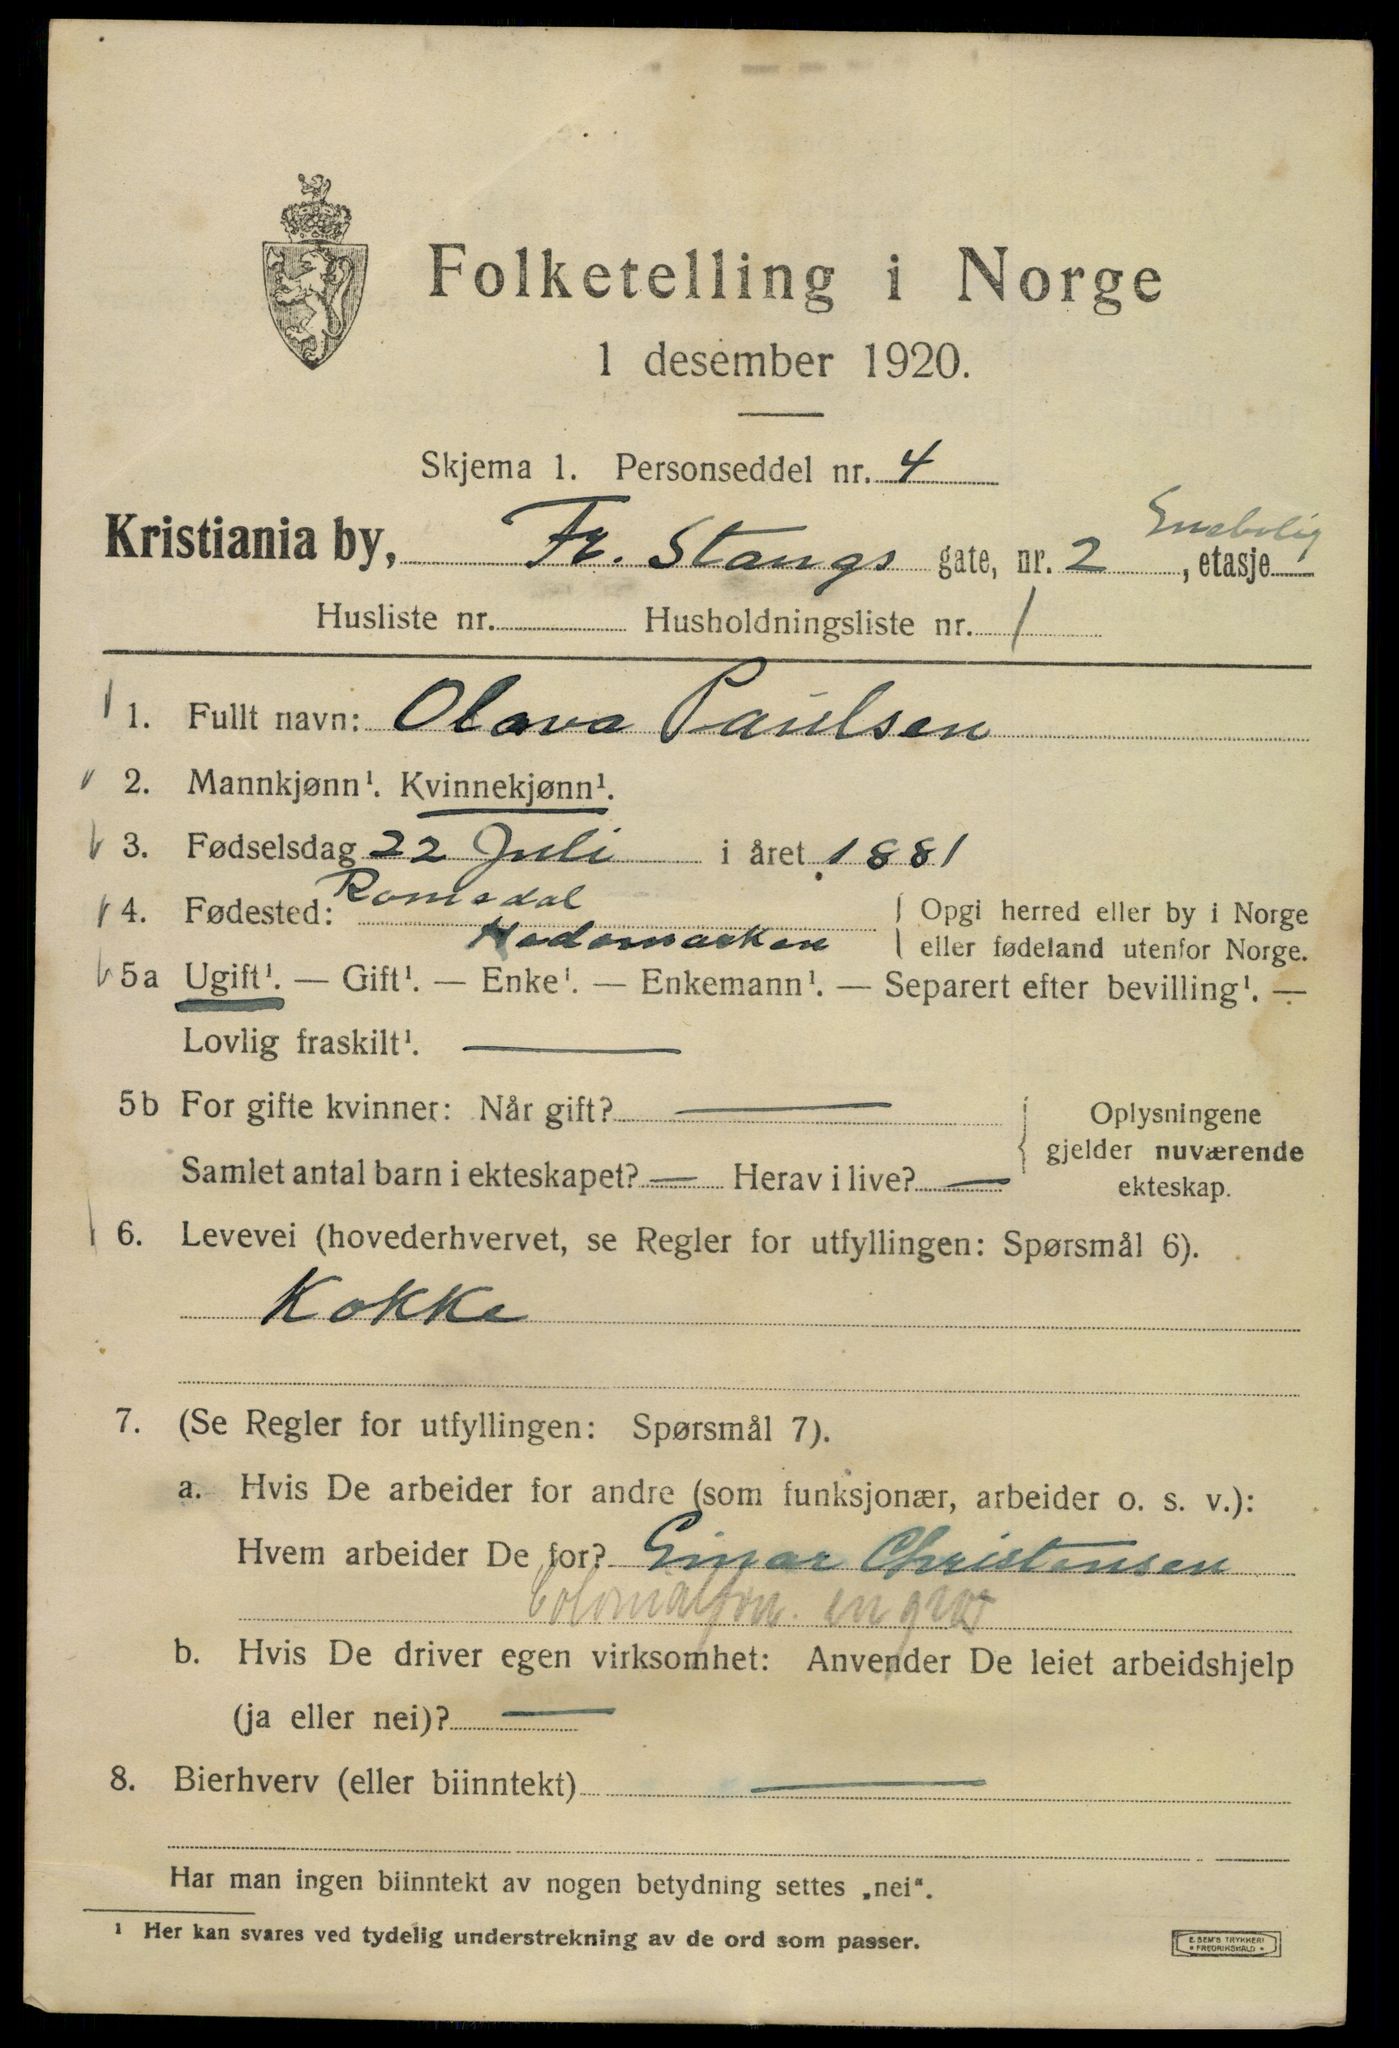 Folketelling i Norge
1 desember 1920.
Skjema 1. Personseddel nr. 4
Enebolig
Kristiania by, Fr. Stangs gate, nr. 2, etasje
Husliste nr. Husholdningsliste nr. 1
1. Fullt navn: Olava Paulsen
2. Mannkjønn¹. Kvinnekjønn¹.
3. Fødselsdag 22 Juli i året 1881
Romedal
4. Fødested: Hedemarken
Opgi herred eller by i Norge
eller fødeland utenfor Norge.
5a Ugift¹. — Gift¹. — Enke¹. — Enkemann¹. — Separert efter bevilling¹. —
Lovlig fraskilt¹. —
5b For gifte kvinner: Når gift? —
Samlet antal barn i ekteskapet? — Herav i live? —
Oplysningene
gjelder nuværende
ekteskap.
6. Levevei (hovederhvervet, se Regler for utfyllingen: Spørsmål 6).
Kokke
7. (Se Regler for utfyllingen: Spørsmål 7).
a. Hvis De arbeider for andre (som funksjonær, arbeider o. s. v.):
Hvem arbeider De for? Einar Christensen
Colonialforr. en gros
b. Hvis De driver egen virksomhet: Anvender De leiet arbeidshjelp
(ja eller nei)? —
8. Bierhverv (eller biinntekt) —
Har man ingen biinntekt av nogen betydning settes „nei“.
¹ Her kan svares ved tydelig understrekning av de ord som passer.
E. SEM'S TRYKKERI
• FREDRIKSHALD •